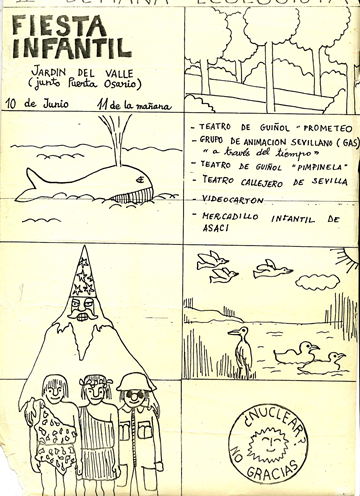 II SEMANA ECOLOGISTA
FIESTA
INFANTIL
JARDIN DEL VALLE
(junto Puerta Osario)
10 de Junio 11 de la mañana
- TEATRO DE GUIÑOL "PROMETEO
- GRUPO DE ANIMACION SEVILLANO (GAS)
"a través del tiempo"
- TEATRO DE GUIÑOL "PIMPINELA"
- TEATRO CALLEJERO DE SEVILLA
- VIDEOCARTON
- MERCADILLO INFANTIL DE
ASACI
¿NUCLEAR?
NO GRACIAS